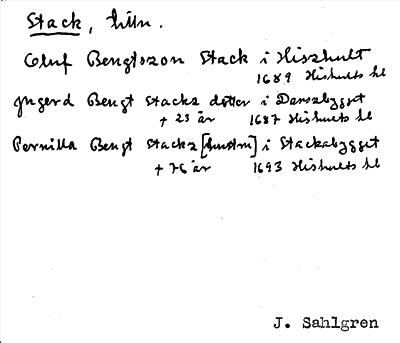 Stack, tilln.
Oluf Bengtszon Stack i Hiszhult
1689 Hishults kl
Jngerd Bengt Stacks dotter i Danszbygget
+ 23 år 1687 Hishults kl
Pernilla Bengt Stacks [hustru] i Stackabygget
+ 76 år 1693 Hishults kl
J. Sahlgren